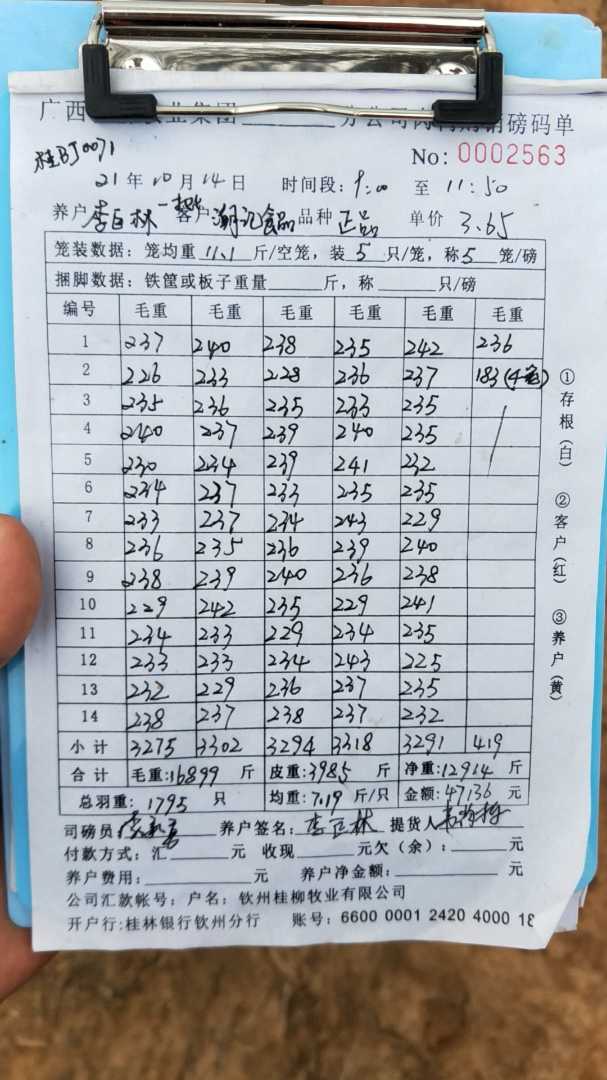 广西 业集团 分公司肉 销磅码单
桂BJ0071
No: 0002563
21年10月14日 时间段: 9:00 至 11:50
养户 李巨林 客户 湖记食品 品种 正品 单价 3.65
笼装数据: 笼均重 11.1 斤/空笼, 装 5 只/笼, 称 5 笼/磅
捆脚数据: 铁筐或板子重量 斤, 称 只/磅
编号 毛重 毛重 毛重 毛重 毛重 毛重
1 237 240 238 235 242 236
2 226 233 228 236 237 183(4笼)
3 235 236 235 233 235
4 240 237 239 240 235
5 230 234 239 241 232
6 234 237 233 235 235
7 233 237 234 243 229
8 236 235 236 239 240
9 238 239 240 236 238
10 229 242 235 229 241
11 234 233 229 234 235
12 233 233 234 243 225
13 232 229 236 237 235
14 238 237 238 237 232
小计 3275 3302 3294 3318 3291 419
合计 毛重:16899 斤 皮重:3985 斤 净重:12914 斤
总羽重: 1795 只 均重: 7.19 斤/只 金额: 47136 元
司磅员 养户签名: 李巨林 提货人
付款方式: 汇 元 收现 元欠(余): 元
养户费用: 元 养户净金额: 元
公司汇款帐号: 户名: 钦州桂柳牧业有限公司
开户行:桂林银行钦州分行 账号: 6600 0001 2420 4000 18
①存根(白) ②客户(红) ③养户(黄)